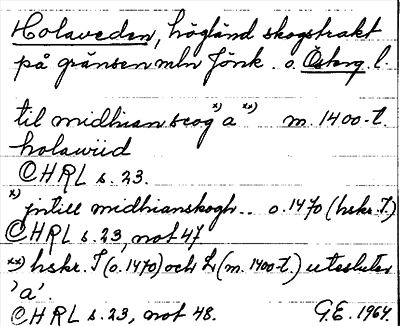 Holaveden, högländ skogstrakt
på gränsen mln Jönk. o. Österg. l.
til midhian scog x) a xx) m. 1400-t.
holawiid
CHRL s. 23.
x) jntill midhianskogh.. o. 1470 (hskr. I)
CHRL s. 23, not 47
xx) hskr. I (o. 1470) och L (m. 1400-t.) utesluter
'a'.
CHRL s. 23, not 48. G.E. 1964.